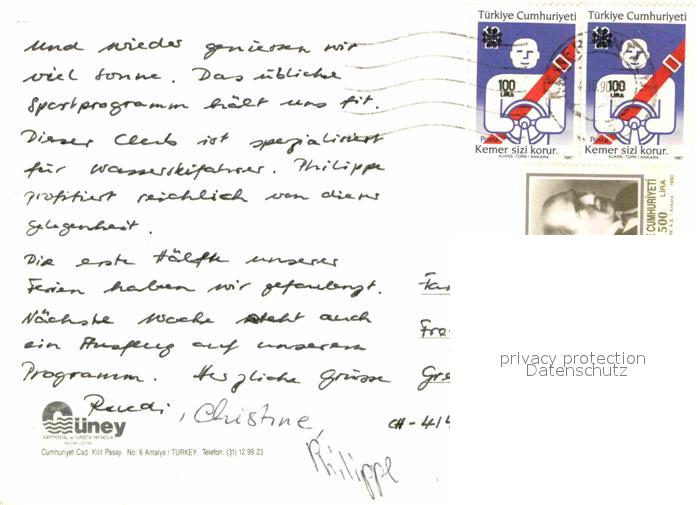 Und wieder geniessen wir
viel Sonne. Das übliche
Sportprogramm hält uns fit.
Dieser Club ist spezialisiert
für Wasserskifahrer. Philippe
profitiert reichlich von dieser
Gelegenheit.
Die erste Hälfte unserer
Ferien haben wir gefaulenzt.
Nächste Woche steht auch
ein Ausflug auf unserem
Programm. Herzliche Grüsse
Ruedi, Christine,
Philippe
Güney
KARTPOSTAL ve TURİSTİK YAYINCILIK
Cumhuriyet Cad. Kilit Pasajı No: 6 Antalya / TURKEY Telefon: (31) 12 99 23
Türkiye Cumhuriyeti
100
LİRA
Kemer sizi korur.
AJANS-TÜRK / ANKARA 1987
Türkiye Cumhuriyeti
100
LİRA
Kemer sizi korur.
AJANS-TÜRK / ANKARA 1987
E CUMHURİYETİ
500 LİRA
Fa
Fre
Gre
CH-41
privacy protection
Datenschutz